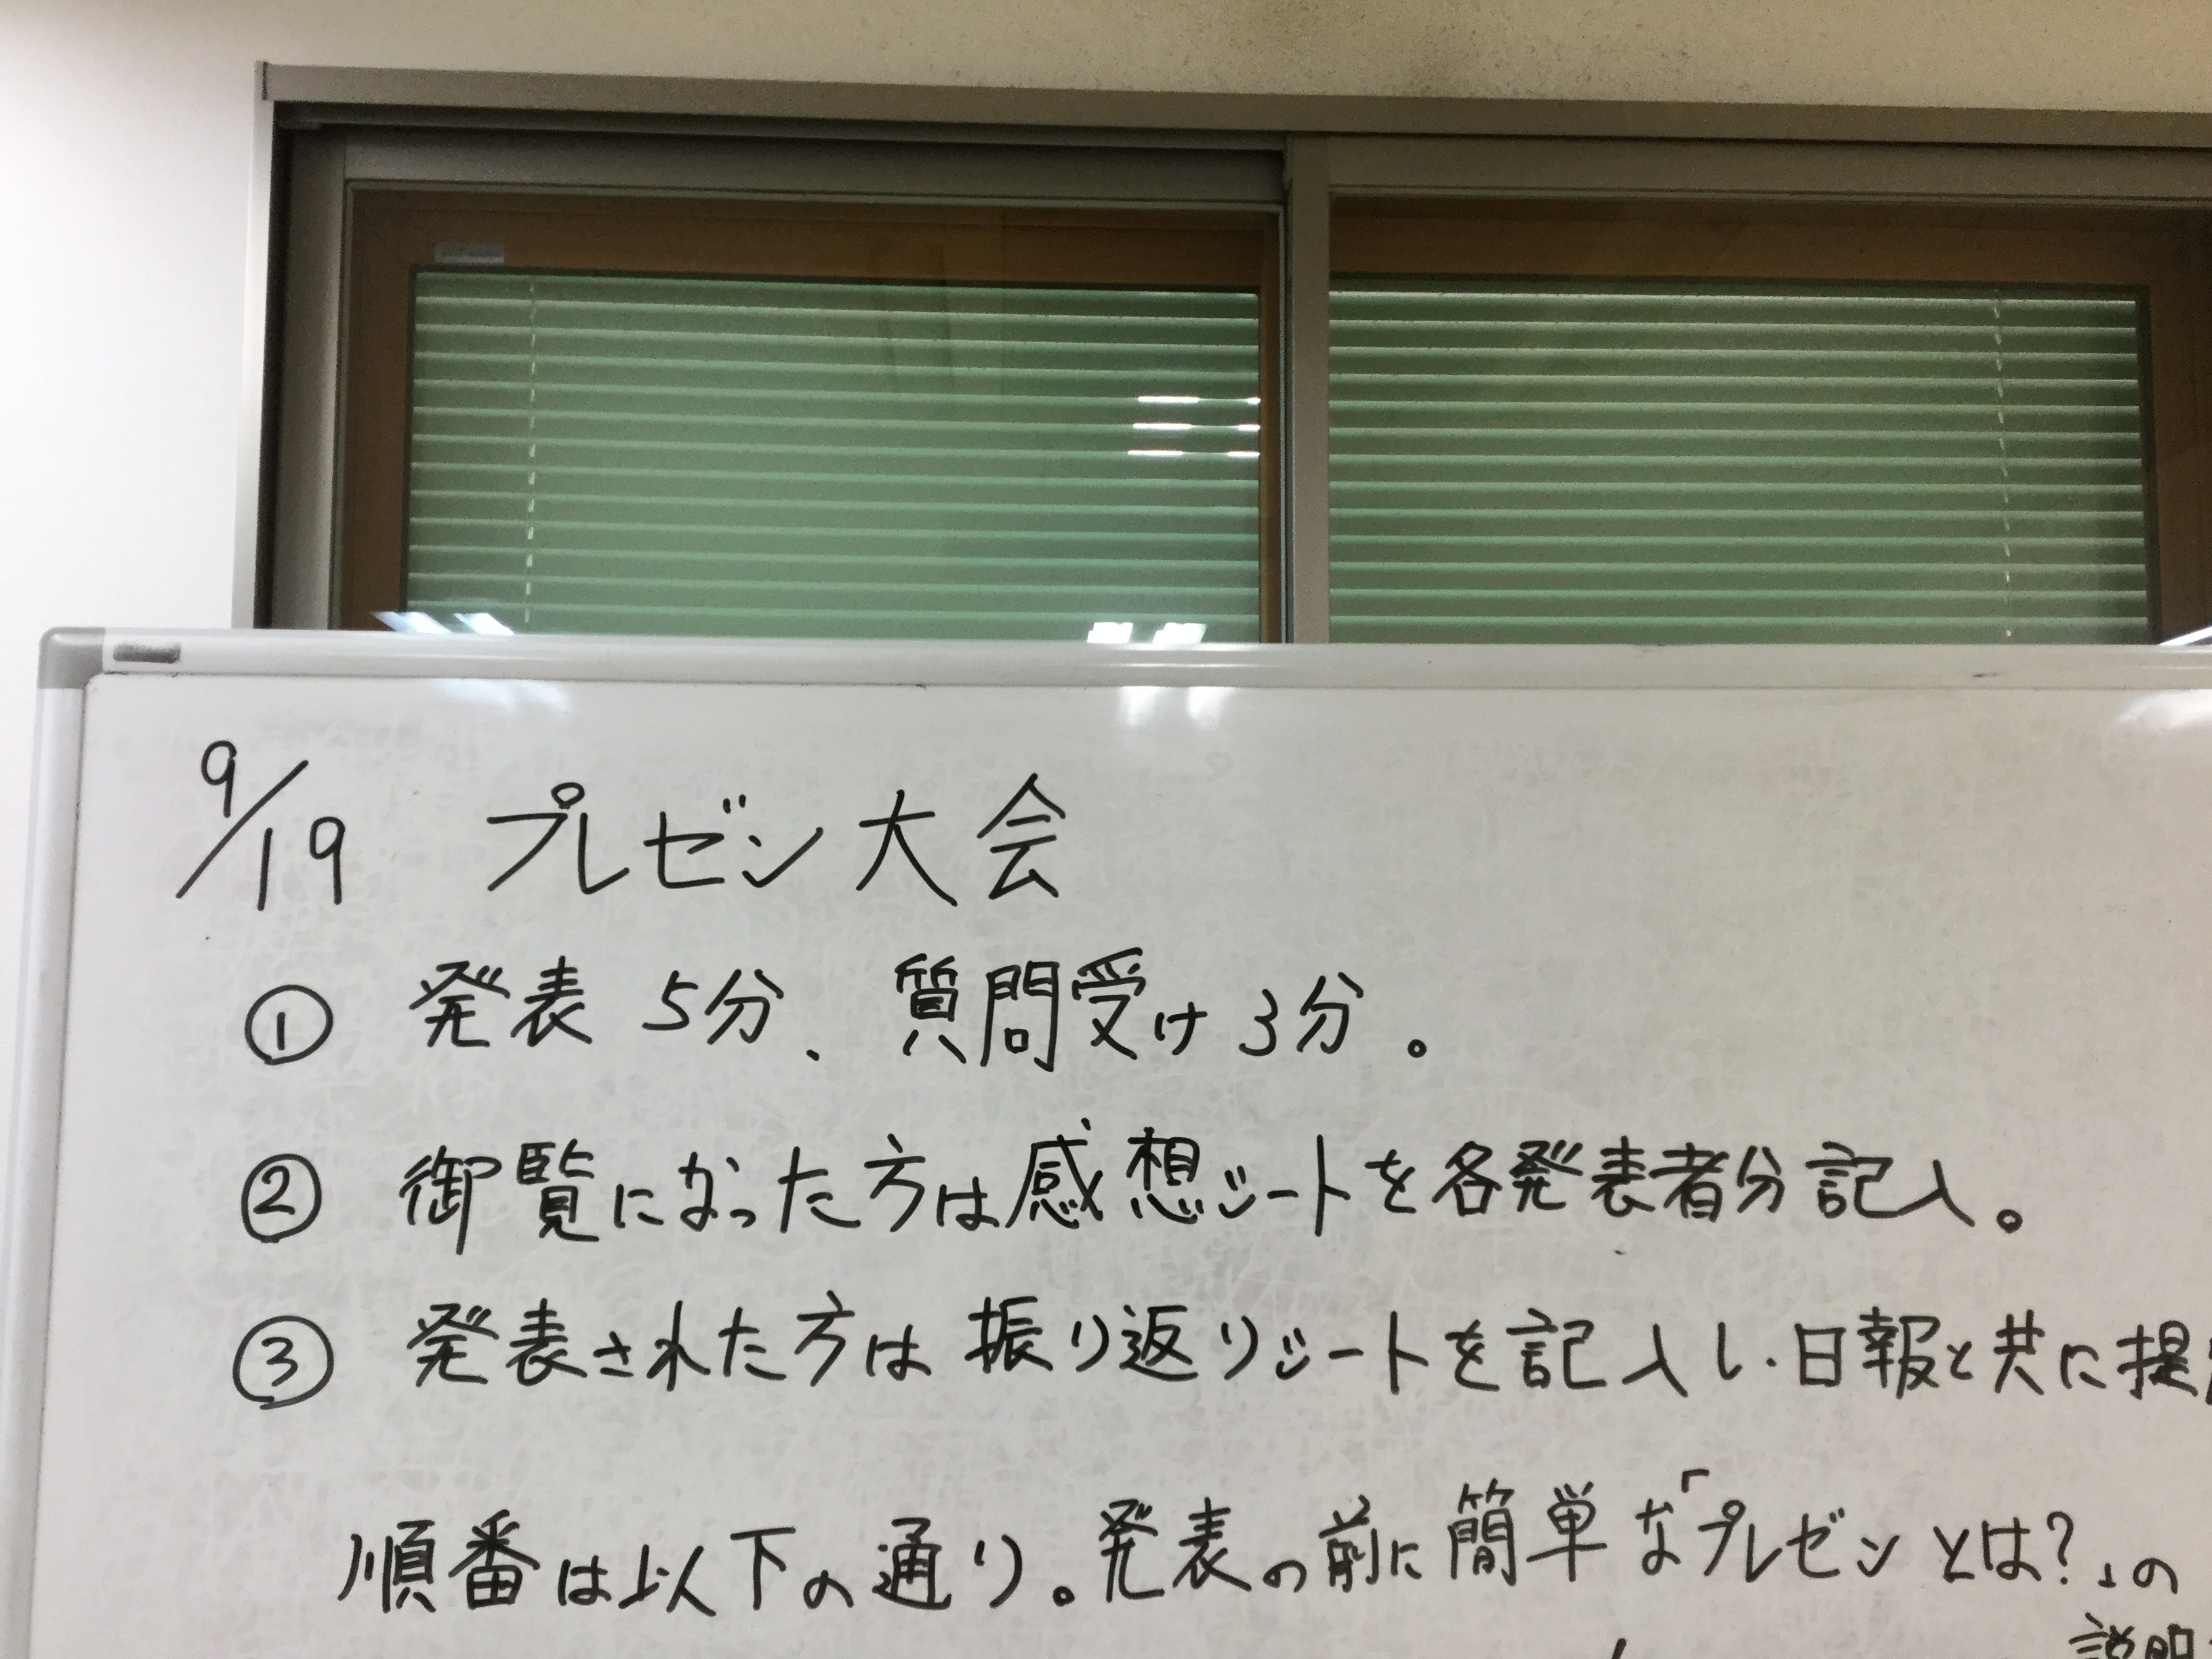 9/19 プレゼン大会
① 発表 5分、質問受け 3分。
② 御覧になった方は感想シートを各発表者分記入。
③ 発表された方は振り返りシートを記入し、日報と共に提
順番は以下の通り。発表の前に簡単な「プレゼンとは?」の
説明